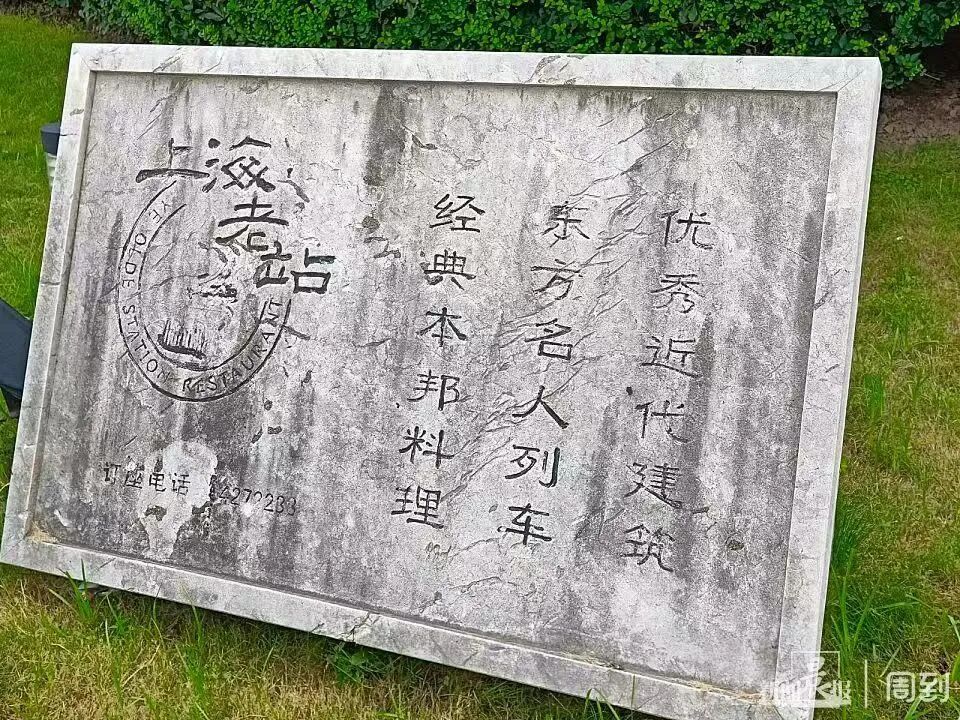 优秀近代建筑
东方名人列车
经典本邦料理
上海老站
YE OLDE STATION RESTAURANT
订座电话 64272233
晨报 周到